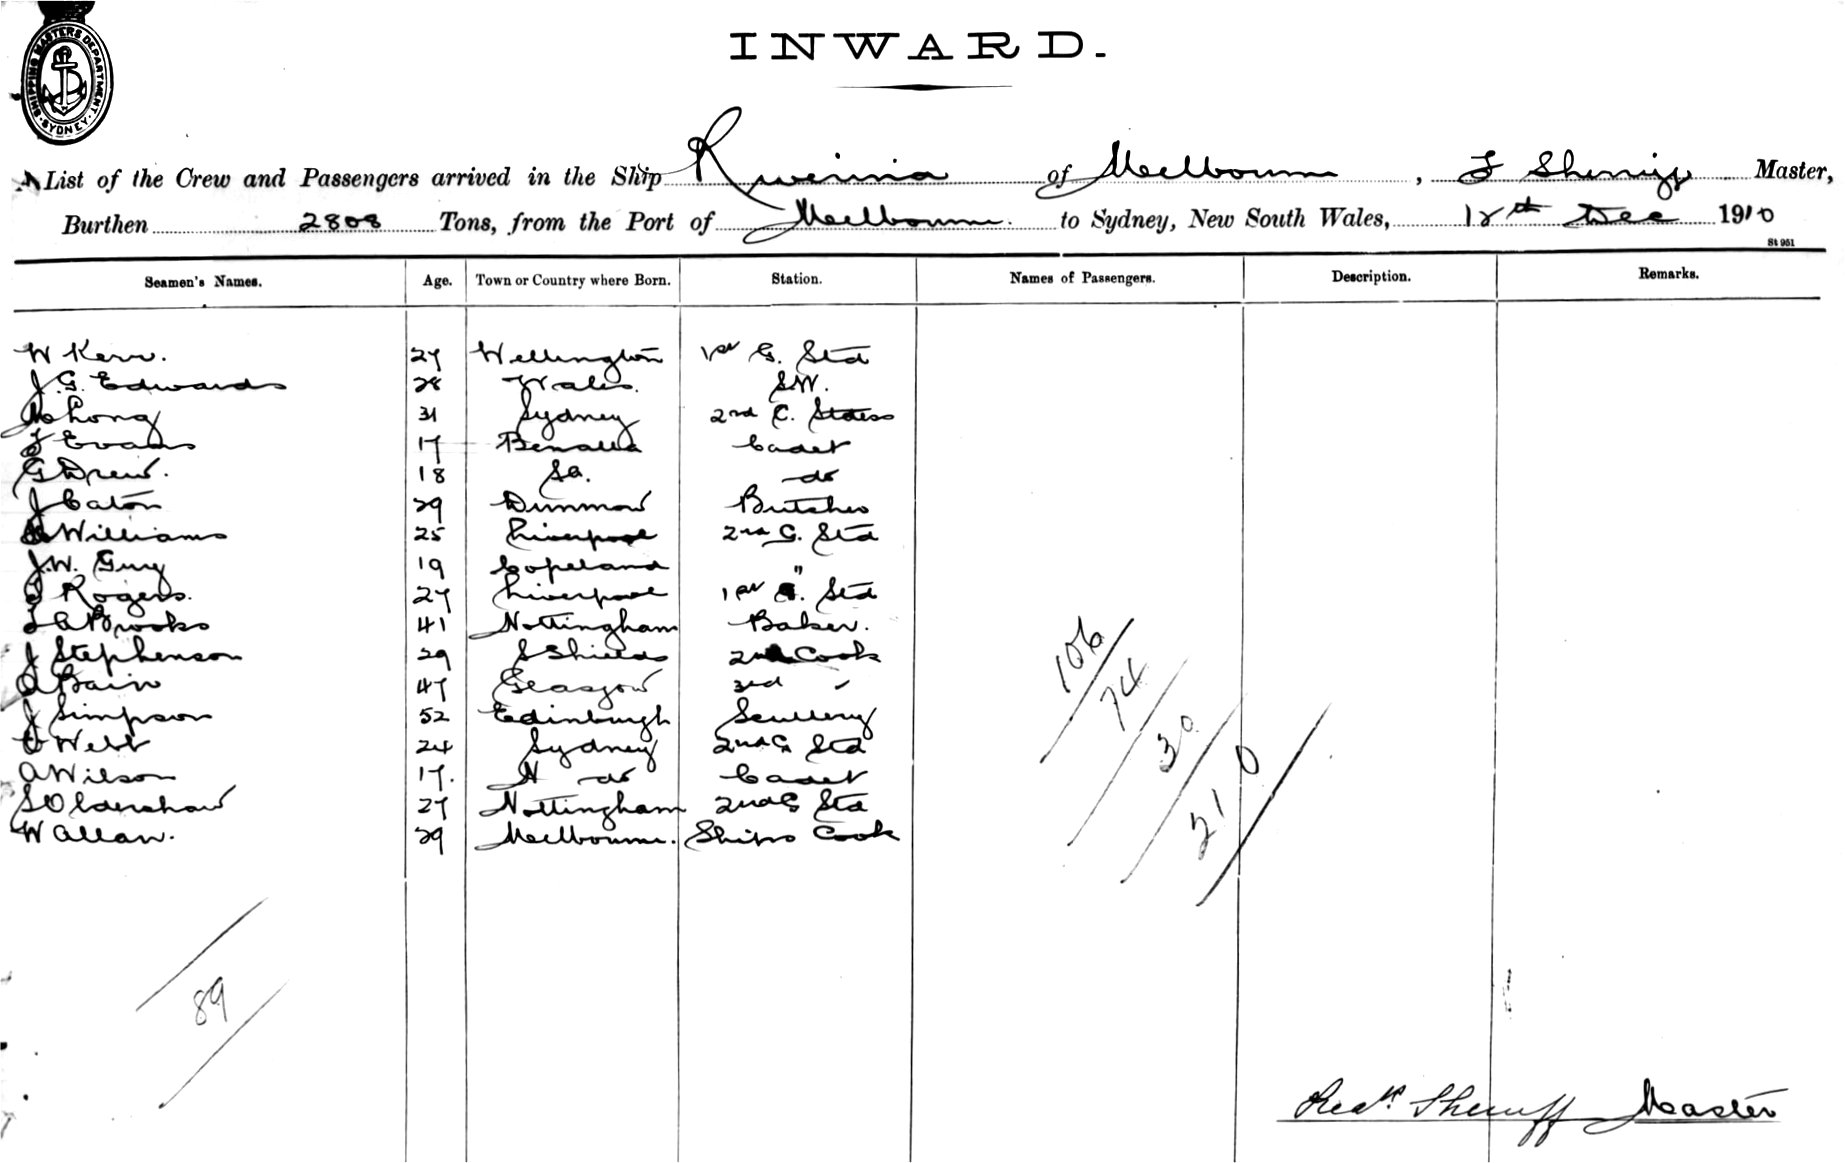 SHIPPING MASTERS DEPARTMENT. SYDNEY.
INWARD.
List of the Crew and Passengers arrived in the Ship Riverina of Melbourne, F Sherriff Master,
Burthen 2808 Tons, from the Port of Melbourne. to Sydney, New South Wales, 18th Dec 1910
St 961
Seamen's Names. Age. Town or Country where Born. Station. Names of Passengers. Description. Remarks.
W Kerr. 27 Wellington 1st G. Std
J. G. Edwards 28 Wales. S.W.
Long 31 Sydney 2nd C. Stdess
F Evans 17 Benalla Cadet
G Drew. 18 Sa. do
J Caton 29 Dunmow Butcher
Williams 25 Liverpool 2nd G. Std
J. W. Guy 19 Copeland "
Rogers. 27 Liverpool 1st Std
F A Brooks 41 Nottingham Baker.
J Stephenson 29 S Shields 2nd Cook
Bain 47 Glasgow 3rd "
J Simpson 52 Edinburgh Scullery
Webb 24 Sydney 2nd G Std
A Wilson 17. N do Cadet
S Oldershaw 27 Nottingham 2nd G Std
W Allan. 29 Melbourne. Ships Cook
106
74
30
210
89
Fredk. Sherriff Master